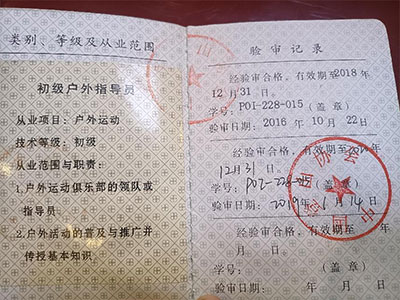 类别、等级及从业范围
初级户外指导员
从业项目：户外运动
技术等级：初级
从业范围与职责：
1.户外运动俱乐部的领队或
指导员
2.户外活动的普及与推广并
传授基本知识
验审记录
经验审合格，有效期至2018年
12月31日。
学号：P01-228-015（盖章）
验审日期：2016年10月22日
经验审合格，有效期至
12月31日。
学号：P02-228-（盖章）
验审日期：2019年1月14日
经验审合格，有效期至 年
月 日。
学号： （盖章）
验审日期： 年 月 日